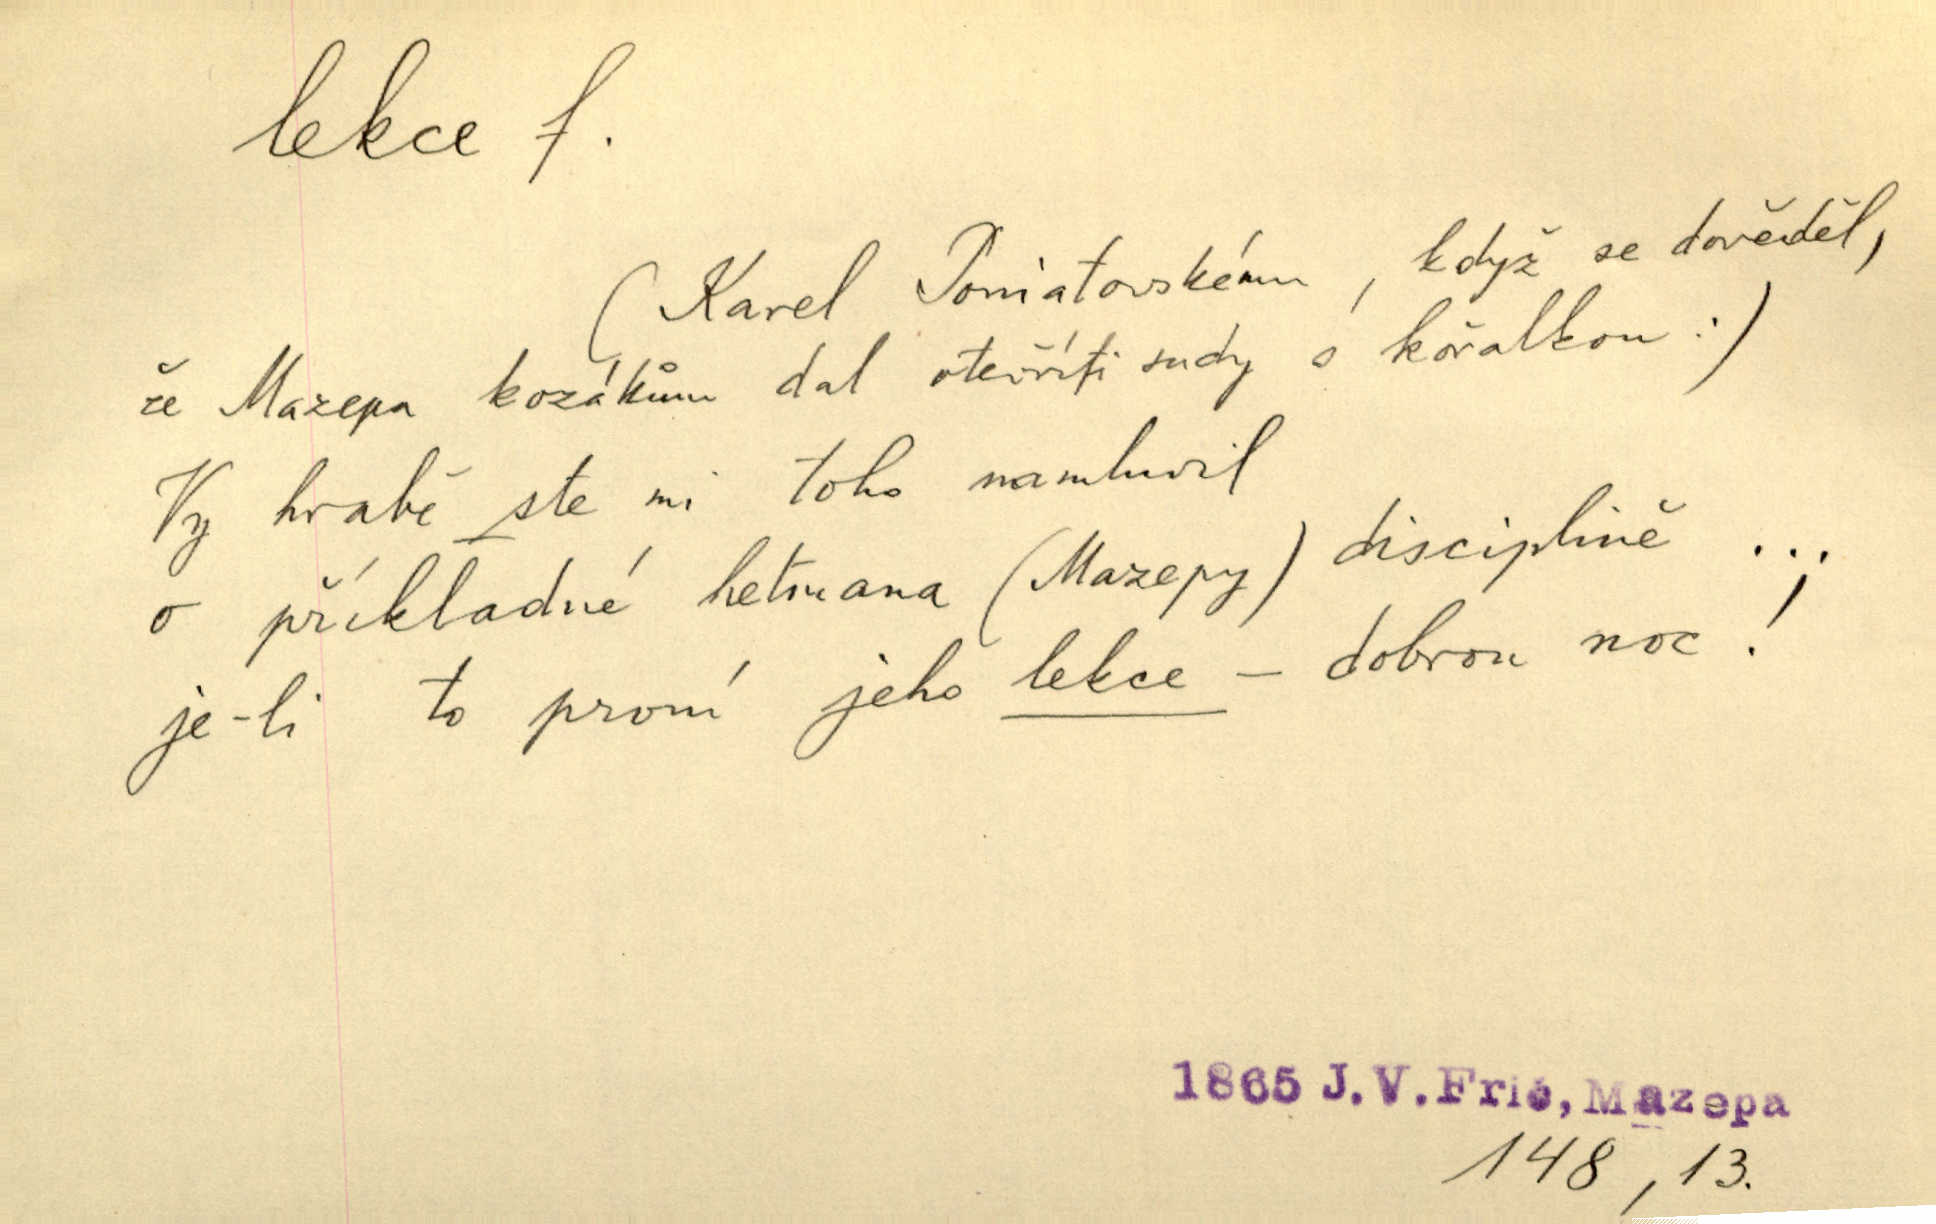 lekce f.
(Karel Poniatovskému, když se dověděl,
že Mazepa kozákům dal otevříti sudy s kořalkou:)
Vy hrabě ste mi toho namluvil
o příkladné hetmana (Mazepy) disciplině ...;
je-li to první jeho lekce – dobrou noc!
1865 J.V.Frič, Mazepa
148, 13.